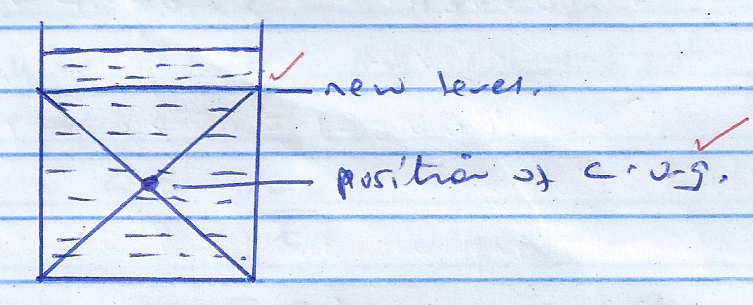 new level.
position of c.o.g.